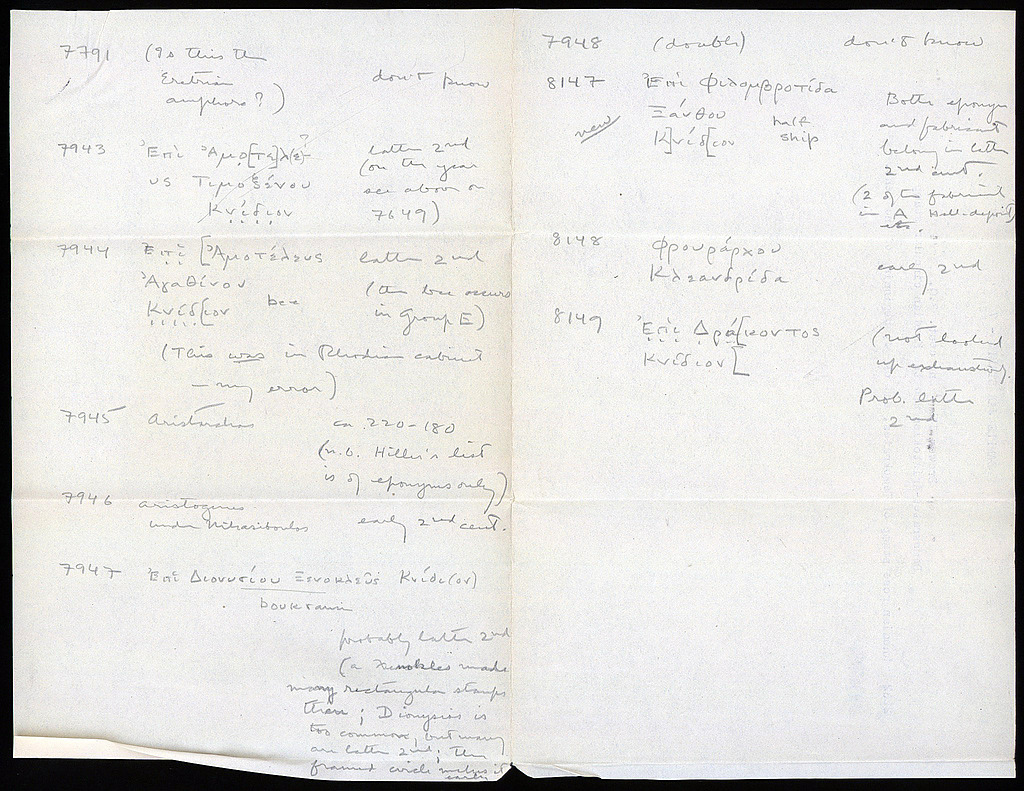 7791 (Is this the
Eretrian don't know
amphora?)
7943 Ἐπὶ Ἀμο[τε]λε͂ latter 2nd
υς Τιμοξένου (on the year
see above on
Κνίδιον 7649)
7944 Ἐπὶ [Ἀμοτέλευς latter 2nd
Ἀγαθίνου (the bee occurs
Κνίδ[ιον bee in Group E)
(This was in Rhodian cabinet
— my error)
7945 Aristarchos ca. 220-180
(n.b. Hiller's list
is of eponyms only)
7946 aristogenes
under early 2nd cent.
7947 Ἐπὶ Διονυσίου Ξενοκλεῦς Κνίδι(ον)
boukrani
probably latter 2nd
(a Xenokles made
many rectangular stamps
then; Dionysios is
too common, but many
are latter 2nd; the
framed circle makes it
early
7948 (double) don't know
8147 Ἐπὶ Φιλομβροτίδα
Ξάνθου half
new Κ]νίδ[ιον ship
Both eponym
and fabricant
belong in latter
2nd cent.
(2 of the fabricant
in A well-deposit,
etc.
8148 Φρουράρχου
Κλεανδρίδα early 2nd
8149 Ἐπὶ Δρά[κοντος (not looked
Κνίδιον[ up exhaustively.
Prob. latter
2nd